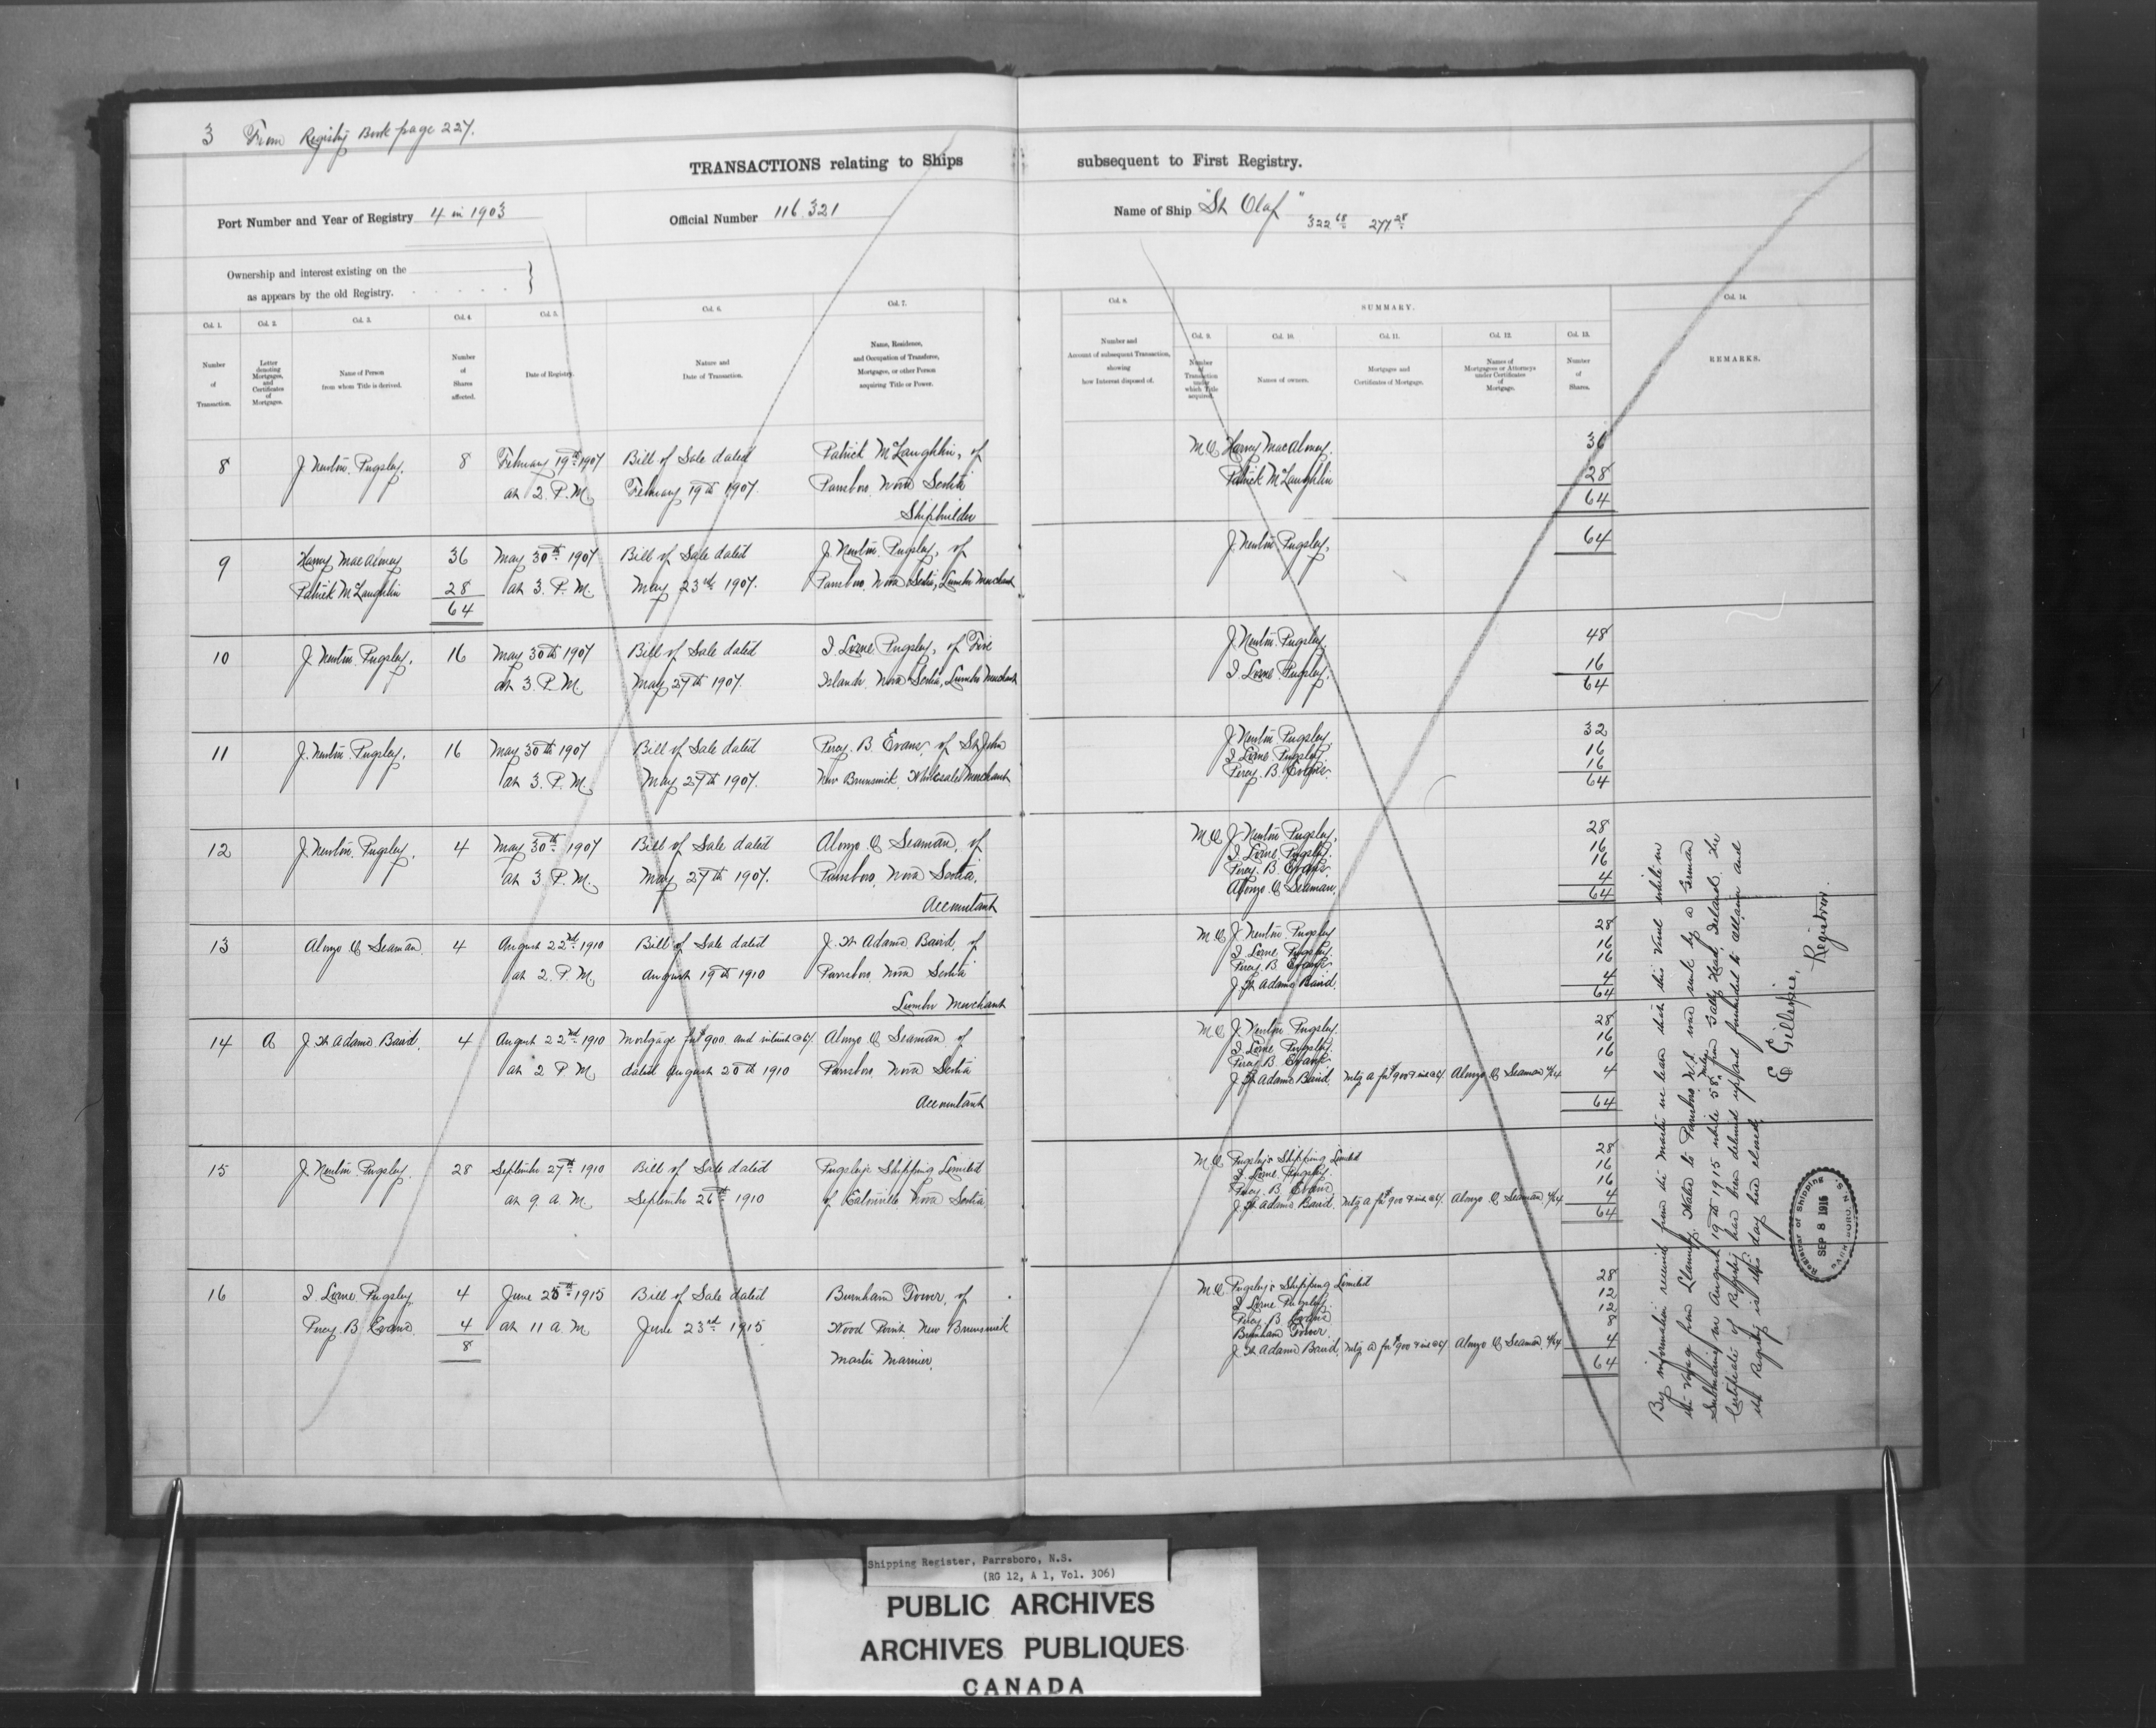 3 From Registry Book page 227.
TRANSACTIONS relating to Ships subsequent to First Registry.
Port Number and Year of Registry 4 in 1903
Official Number 116.321
Name of Ship "St Olaf"
322 68 277 28
Ownership and interest existing on the
as appears by the old Registry. . . . . . }
Col. 1.
Number
of
Transaction.
Col. 2.
Letter
denoting
Mortgages,
and
Certificates
of
Mortgages.
Col. 3.
Name of Person
from whom Title is derived.
Col. 4.
Number
of
Shares
affected.
Col. 5.
Date of Registry.
Col. 6.
Nature and
Date of Transaction.
Col. 7.
Name, Residence,
and Occupation of Transferee,
Mortgagee, or other Person
acquiring Title or Power.
Col. 8.
Number and
Account of subsequent Transaction,
showing
how Interest disposed of.
SUMMARY.
Col. 9.
Number
of
Transaction
under
which Title
acquired.
Col. 10.
Names of owners.
Col. 11.
Mortgages and
Certificates of Mortgage.
Col. 12.
Names of
Mortgagees or Attorneys
under Certificates
of
Mortgage.
Col. 13.
Number
of
Shares.
Col. 14.
REMARKS.
8 J. Newton Pugsley. 8 February 19th 1907 Bill of Sale dated Patrick McLaughlin, of
at 2. P.M. February 19th 1907. Parrsboro, Nova Scotia
Shipbuilder
Harvey 36
Patrick McLaughlin 28
64
9 Harvey 36 May 30th 1907 Bill of Sale dated J. Newton Pugsley, of
Patrick McLaughlin 28 at 3. P.M. May 23rd 1907. Parrsboro, Nova Scotia, Lumber Merchant
64
J. Newton Pugsley, 64
10 J. Newton Pugsley, 16 May 30th 1907 Bill of Sale dated I. Lorne Pugsley, of Five
at 3. P.M. May 27th 1907. Islands, Nova Scotia, Lumber Merchant
J. Newton Pugsley 48
I. Lorne Pugsley. 16
64
11 J. Newton Pugsley, 16 May 30th 1907 Bill of Sale dated Percy. B. Evans, of St John
at 3. P.M. May 27th 1907. New Brunswick, Wholesale Merchant
J. Newton Pugsley 32
I Lorne Pugsley 16
Percy. B. Evans 16
64
12 J. Newton Pugsley, 4 May 30th 1907 Bill of Sale dated Alonzo C Seaman, of
at 3. P.M. May 27th 1907. Parrsboro, Nova Scotia,
Accountant
J. Newton Pugsley, 28
I Lorne Pugsley. 16
Percy. B. Evans 16
Alonzo C Seaman 4
64
13 Alonzo C Seaman 4 August 22nd 1910 Bill of Sale dated J. W Adams Baird, of
at 2. P.M. August 19th 1910 Parrsboro, Nova Scotia
Lumber Merchant
J. Newton Pugsley 28
I. Lorne Pugsley 16
Percy B Evans 16
J. W Adams Baird. 4
64
14 A J. W Adams Baird, 4 August 22nd 1910 Mortgage for $900 and interest Alonzo C Seaman, of
at 2 P M. dated August 20th 1910 Parrsboro, Nova Scotia
Accountant
J. Newton Pugsley 28
I. Lorne Pugsley. 16
Percy B Evans 16
J. W Adams Baird Mtg A for $900 Alonzo C Seaman 4
64
15 J. Newton Pugsley. 28 September 27th 1910 Bill of Sale dated Pugsley's Shipping Limited
at 9. a. M. September 26th 1910 of Eatonville, Nova Scotia
Pugsley's Shipping Limited 28
I. Lorne Pugsley. 16
Percy. B. Evans 16
J. W Adams Baird. Mtg A for $900 Alonzo C Seaman 4
64
16 I Lorne Pugsley. 4 June 25th 1915 Bill of Sale dated Burnham Tower, of
Percy B Evans. 4 at 11 a M June 23rd 1915 Wood Point, New Brunswick
8 Master Mariner,
Pugsley's Shipping Limited 28
I. Lorne Pugsley. 12
Percy B Evans 12
Burnham Tower. 8
J. W Adams Baird, Mtg A for $900 Alonzo C Seaman 4
64
By information received from the Master we learn that this Vessel while on
the Voyage from Llanelly, Wales to Parrsboro N.S. was sunk by a German
Submarine on August 19th 1915 while 58 miles from Galley Head, Ireland. The
Certificate of Registry has been delivered up and forwarded to Ottawa and
the Registry is this day here closed,
E Gillespie,
Registrar.
Registrar of Shipping
SEP 8 1915
PARRSBORO, N.S.
Shipping Register, Parrsboro, N.S.
(RG 12, A 1, Vol. 306)
PUBLIC ARCHIVES
ARCHIVES PUBLIQUES
CANADA